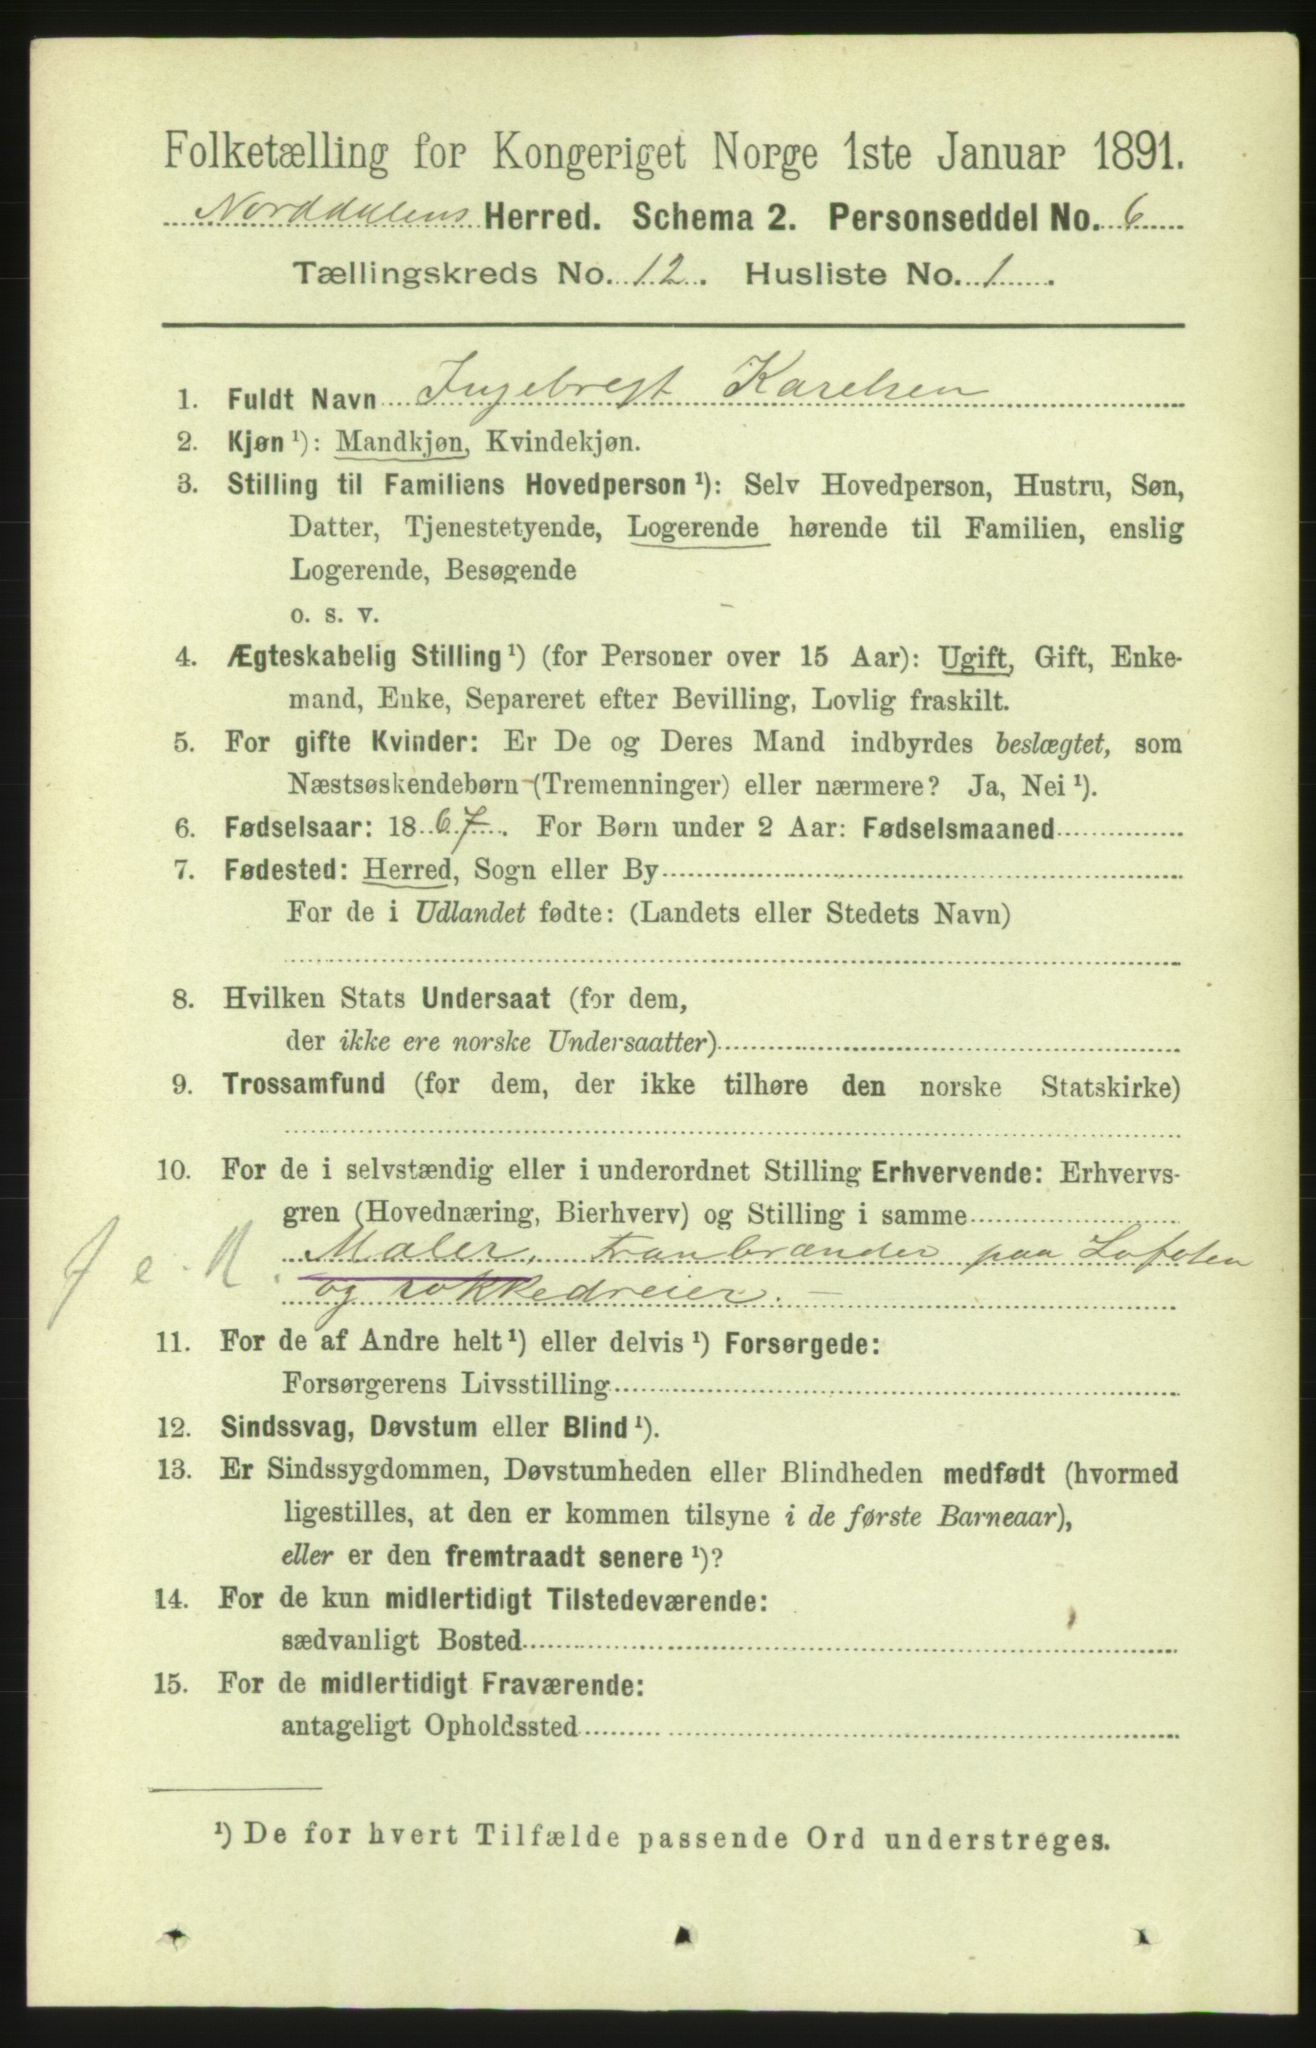 Folketælling for Kongeriget Norge 1ste Januar 1891.
Norddalens Herred. Schema 2. Personseddel No. 6
Tællingskreds No. 12. Husliste No. 1.
1. Fuldt Navn Ingebregt Karelsen
2. Kjøn ¹): Mandkjøn, Kvindekjøn.
3. Stilling til Familiens Hovedperson ¹): Selv Hovedperson, Hustru, Søn,
Datter, Tjenestetyende, Logerende hørende til Familien, enslig
Logerende, Besøgende
o. s. v.
4. Ægteskabelig Stilling ¹) (for Personer over 15 Aar): Ugift, Gift, Enke-
mand, Enke, Separeret efter Bevilling, Lovlig fraskilt.
5. For gifte Kvinder: Er De og Deres Mand indbyrdes beslægtet, som
Næstsøskendebørn (Tremenninger) eller nærmere? Ja, Nei ¹).
6. Fødselsaar: 1867. For Børn under 2 Aar: Fødselsmaaned
7. Fødested: Herred, Sogn eller By
For de i Udlandet fødte: (Landets eller Stedets Navn)
8. Hvilken Stats Undersaat (for dem,
der ikke ere norske Undersaatter)
9. Trossamfund (for dem, der ikke tilhøre den norske Statskirke)
10. For de i selvstændig eller i underordnet Stilling Erhvervende: Erhvervs-
gren (Hovednæring, Bierhverv) og Stilling i samme
Maler, tranbrænder paa Lofoten
og rokkedreier. –
11. For de af Andre helt ¹) eller delvis ¹) Forsørgede:
Forsørgerens Livsstilling
12. Sindssvag, Døvstum eller Blind ¹).
13. Er Sindssygdommen, Døvstumheden eller Blindheden medfødt (hvormed
ligestilles, at den er kommen tilsyne i de første Barneaar),
eller er den fremtraadt senere ¹)?
14. For de kun midlertidigt Tilstedeværende:
sædvanligt Bosted
15. For de midlertidigt Fraværende:
antageligt Opholdssted
¹) De for hvert Tilfælde passende Ord understreges.